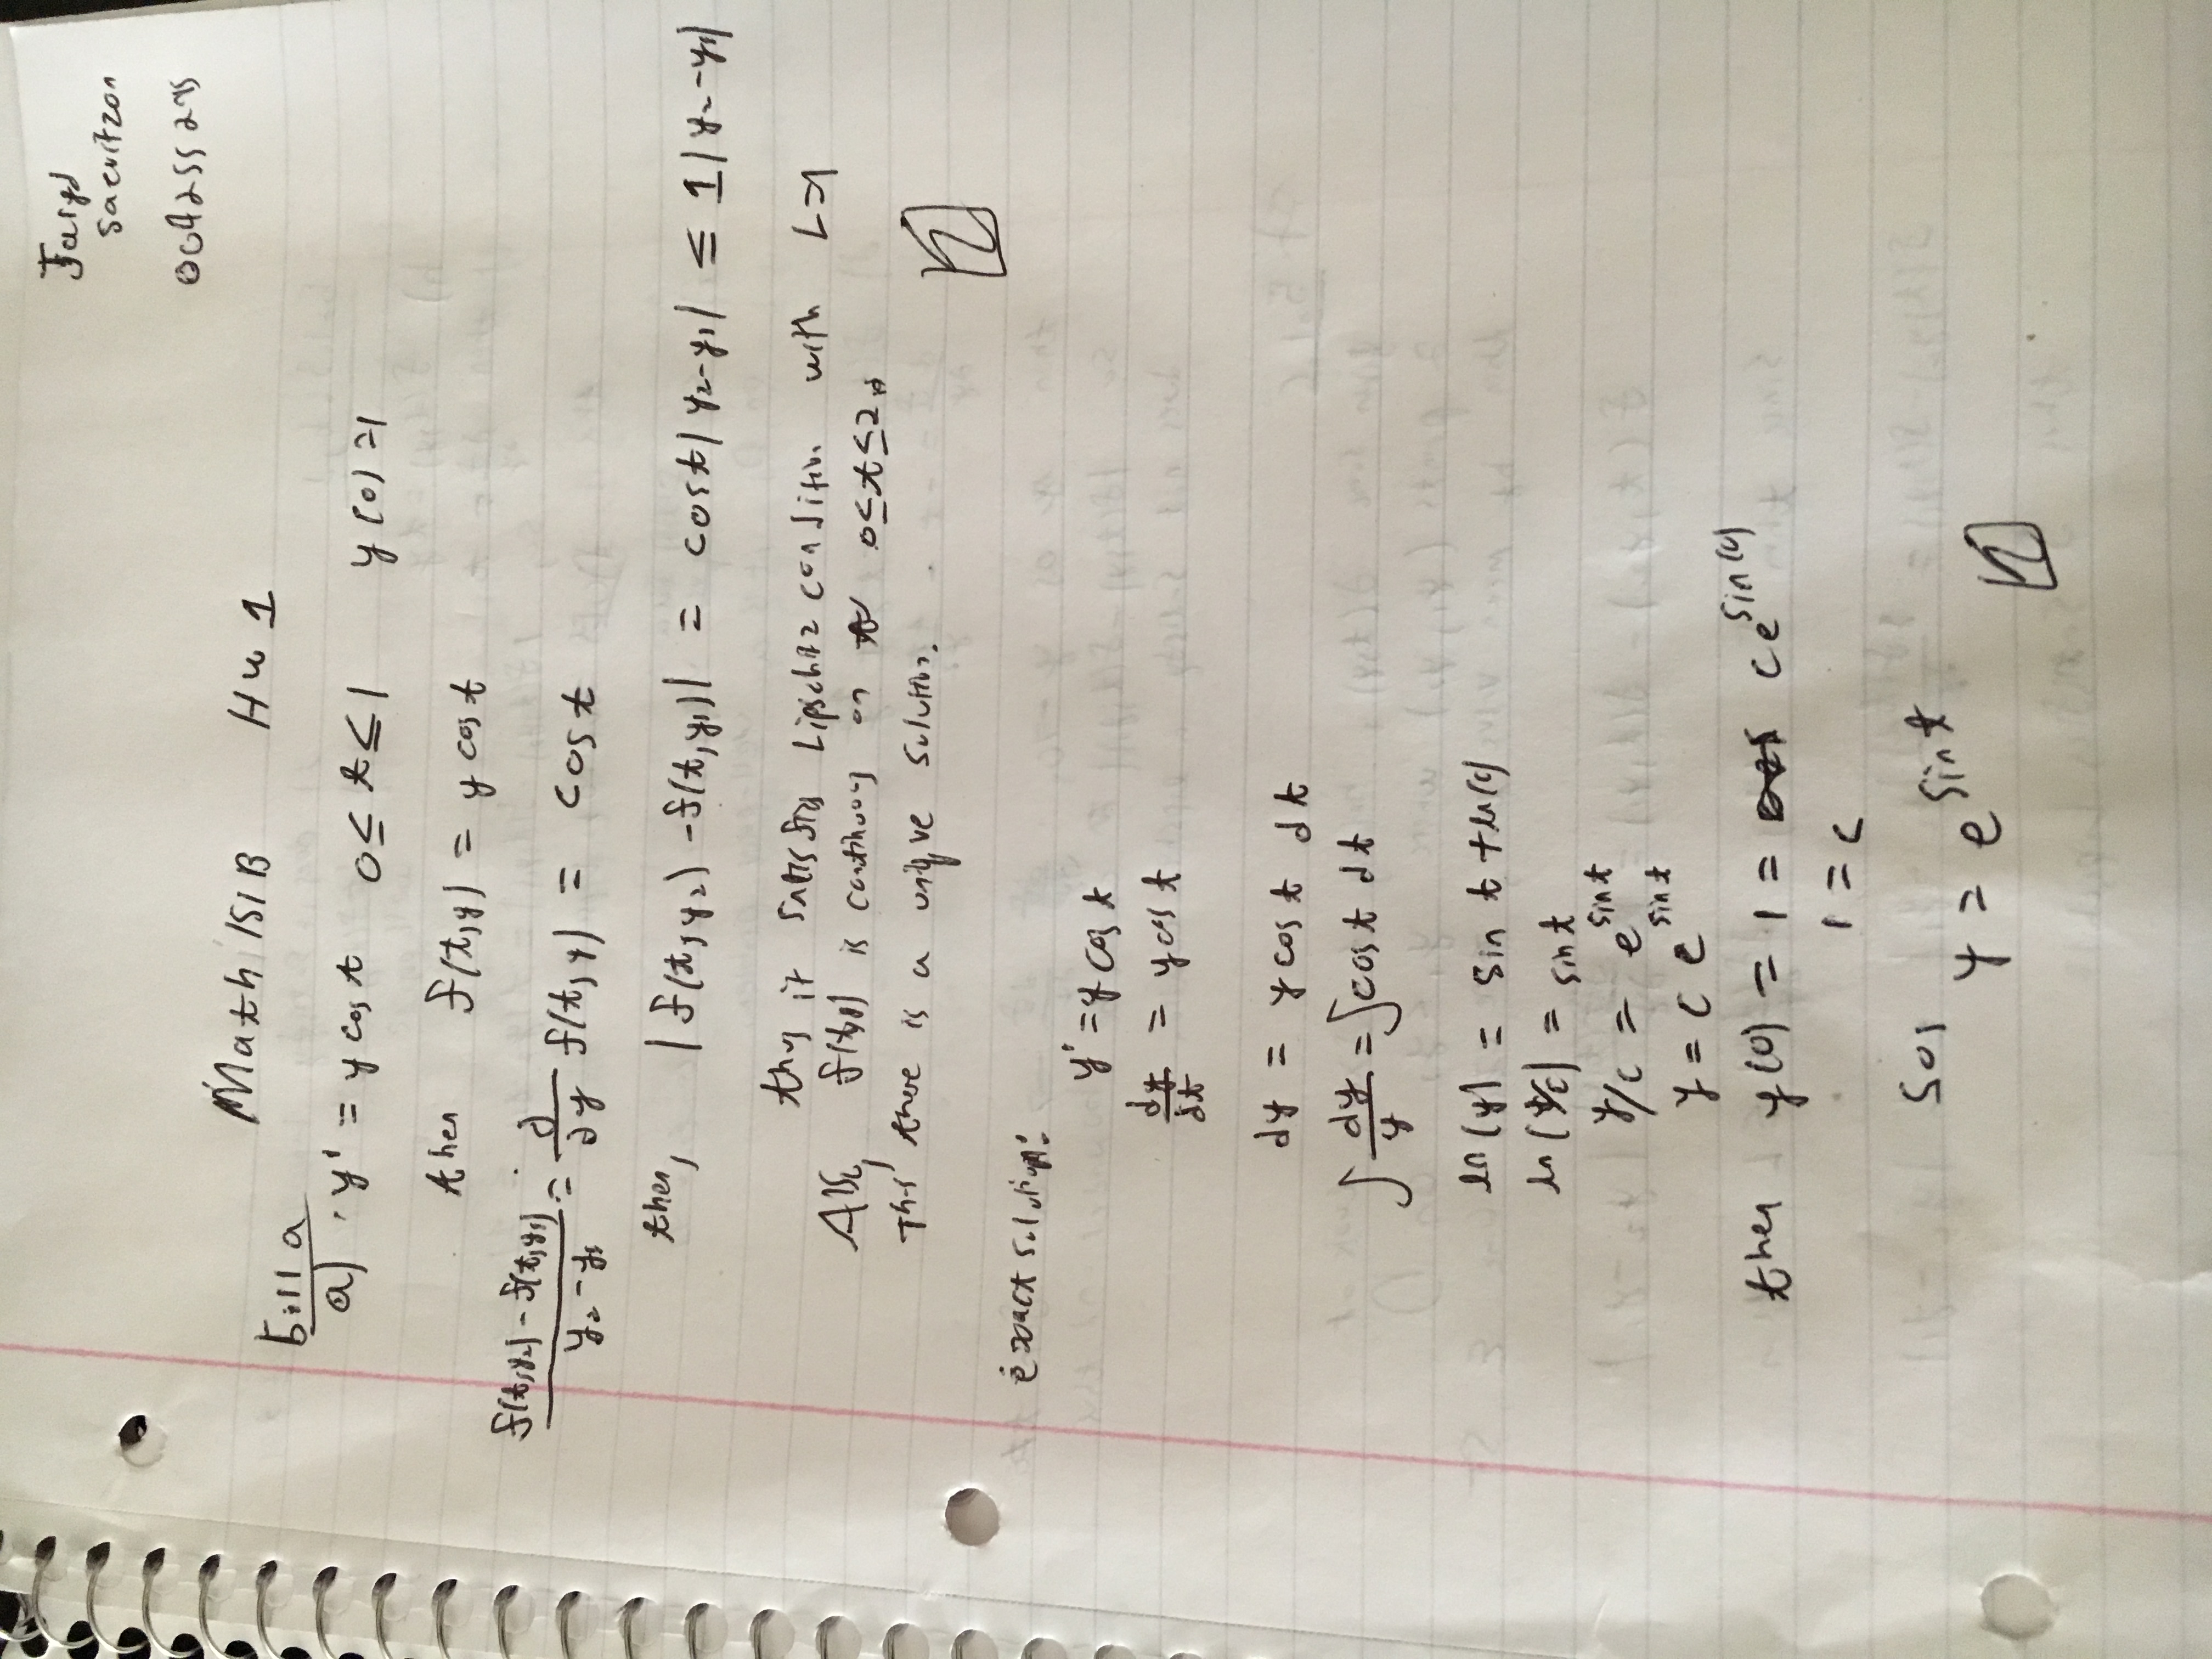 Jaryd
Saevitzon
Math 151B HW 1
5.1 1a
a) y' = y cos t 0 ≤ t ≤ 1 y(0) = 1
then f(t,y) = y cos t
(f(t,y₂) - f(t,y₁))/(y₂ - y₁) = ∂/∂y f(t,y) = cos t
then, |f(t,y₂) - f(t,y₁)| = cos t |y₂-y₁| ≤ 1|y₂-y₁|
thus it satisfies Lipschitz condition with L=1
Also, f(t,y) is continuous on 0 ≤ t ≤ 2.
Thus there is a unique solution.
exact solution:
y' = y cos t
dy/dt = y cos t
dy = y cos t dt
∫ dy/y = ∫ cos t dt
ln(y) = sin t + ln(c)
ln(y/c) = sin t
y/c = e^{sin t}
y = c e^{sin t}
then y(0) = 1 = c e^{sin(0)}
1 = c
So, y = e^{sin t}